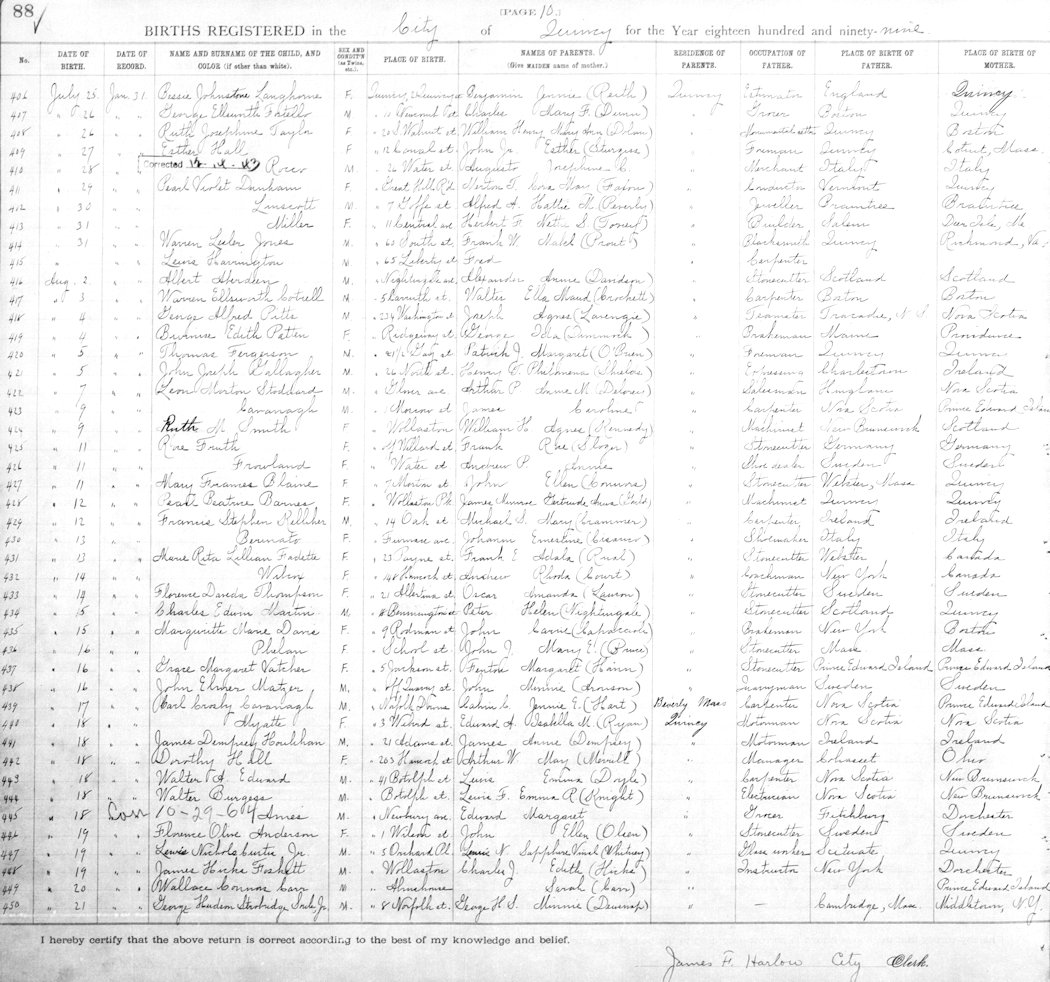 88
[PAGE 10.]
BIRTHS REGISTERED in the City of Quincy for the Year eighteen hundred and ninety-nine
No. DATE OF BIRTH. DATE OF RECORD. NAME AND SURNAME OF THE CHILD, AND COLOR (if other than white). SEX AND CONDIT'N (as Twins, etc.). PLACE OF BIRTH. NAMES OF PARENTS. (Give MAIDEN name of mother.) RESIDENCE OF PARENTS. OCCUPATION OF FATHER. PLACE OF BIRTH OF FATHER. PLACE OF BIRTH OF MOTHER.
406 July 25 Jan. 31 Bessie Johnstone Langhorne F. Benjamin Jennie (Reith) Quincy Estimator England Quincy
407 " 26 " " George Ellsworth Fostello M. Charles Mary F. (Dunn) " Grocer Boston Quincy
408 " 26 " " Ruth Josephine Taylor F. " 208 Walnut st. William Henry Mary Ann (Dolan) " Quincy Boston
409 " 27 " " Esther Hall F. " 12 Canal st. John Jr. Esther (Sturgess) " Foreman Quincy Cotuit, Mass.
410 " 28 " Corrected 12-4-43 Rocco M. " 26 Water st. Augusto Josephine C. " Merchant Italy Italy
411 " 29 " " Pearl Violet Dunham F. " Great Hill Rd. Merton T. Cora May " Conductor Vermont Quincy
412 " 30 " " Linscott M. " 7 Goffe st. Alfred A. Hattie M. (Beverly) " Jeweller Braintree Braintree
413 " 31 " " Miller F. " 11 Central ave Herbert F. Nettie S. " Builder Salem Deer Isle, Me
414 " 31 " " Warren Lester Jones M. " 63 South st. Frank W. Mabel (Prout) " Blacksmith Quincy Richmond, Va.
415 " " " Lewis Harrington M. " 65 Liberty st. Fred " Carpenter
416 Aug. 2 " " Albert Aberdein M. " Nightingale ave Alexander Annie (Davidson) " Stonecutter Scotland Scotland
417 " 3 " " Warren Ellsworth Cotrell M. Walter Ella Maud (Crockett) " Carpenter Boston Boston
418 " 4 " " George Alfred Pitts M. " 234 Washington st. Joseph Agnes " Teamster Tracadie, N.S. Nova Scotia
419 " 4 " " Edith Patten F. " Ridgeway st. George Ida (Dammock) " Brakeman Maine Providence
420 " 5 " " Thomas Fergerson M. Patrick J. Margaret (O'Brien) " Foreman Quincy Quincy
421 " 5 " " John Joseph Gallagher M. " 26 North st. Henry D. Philomena (Phelan) " Charlestown Ireland
422 " 7 " " Leon Morton Stoddard M. " Glover ave Arthur P. Annie M. " Salesman Hingham Nova Scotia
423 " 9 " " Cavanagh M. James Caroline " Carpenter Nova Scotia Prince Edward Island
424 " 9 " " Ruth M. Smith F. " Wollaston William H. Agnes (Kennedy) " Machinist New Brunswick Scotland
425 " 11 " " Rose Fruth F. " Willard st. Frank Rose " Stonecutter Germany Germany
426 " 11 " " Frowland F. " Water st. Andrew P. Annie " Shoe dealer Sweden Sweden
427 " 11 " " Mary Frances Blaine F. John Ellen (Connors) " Stonecutter Webster, Mass Quincy
428 " 12 " " Pearl Beatrice Barnes F. " Wollaston Pk. James Munroe Gertrude Anna " Machinist Quincy Quincy
429 " 12 " " Francis Stephen Kelliher M. " 14 Oak st. Michael S. Mary (Crammer) " Carpenter Ireland Ireland
430 " 13 " " Bernato F. " Furnace ave. Johann Ernestine " Shoemaker Italy Italy
431 " 13 " " Marie Rita Lillian Fadette F. " 23 Payne st. Frank E. Adala " Stonecutter Webster Canada
432 " 14 " " Wilson F. " 148 Hancock st. Andrew Rhoda (Court) " Coachman New York Canada
433 " 14 " " Florence Thompson F. " 21 Albertina st. Oscar Amanda (Lawson) " Stonecutter Sweden Sweden
434 " 15 " " Charles Edwin Martin M. " 8 Bennington st Peter Helen (Nightingale) " Stonecutter Scotland Quincy
435 " 15 " " Marguritte Marie Davis F. " 9 Rodman st. John Carrie " Brakeman New York Boston
436 " 16 " " Phelan F. " School st. John J. Mary E. (Prince) " Stonecutter Mass Mass
437 " 16 " " Grace Margaret Vatcher F. " 5 Jackson st. Fenton Margaret (Hann) " Stonecutter Prince Edward Island Prince Edward Island
438 " 16 " " John Matzer M. " off Quarry st. John Minnie (Aronson) " Quarryman Sweden Sweden
439 " 17 " " Earl Crosby Cavanagh M. " Norfolk Downs Jennie E. (Hart) Beverly Mass Carpenter Nova Scotia Prince Edward Island
440 " 18 " " Hyatte F. " 3 Edward A. Isabella M. (Ryan) Quincy Motorman Nova Scotia Nova Scotia
441 " 18 " " James Dempsey Houlihan M. " 21 Adams st. James Annie (Dempsey) " Motorman Ireland Ireland
442 " 18 " " Dorothy Hall F. " 203 Hancock st. Arthur W. May (Merrill) " Manager Cohasset Ohio
443 " 18 " " Walter A. Edward M. " 41 Botolph st. Lewis Emma (Doyle) " Carpenter Nova Scotia New Brunswick
444 " 18 " " Walter Burgess M. " Botolph st. Lewis F. Emma R. (Knight) " Electrician Nova Scotia New Brunswick
445 " 18 Corr 10-29-64 Ames M. " Newbury ave. Edward Margaret " Grocer Fitchburg Dorchester
446 " 19 " " Florence Olive Anderson F. " 1 Wilson st. John Ellen (Olsen) " Stonecutter Sweden Sweden
447 " 19 " " Lewis Nichols Curtis Jr. M. " 5 Orchard Pl. Lewis N. Sapphire (Whitney) " Glass worker Scituate Quincy
448 " 19 " " James Hicks Foskett M. " Wollaston Charles J. Edith (Hicks) " Instructor New York Dorchester
449 " 20 " " Wallace Connor Carr M " Almshouse Sarah (Carr) " Prince Edward Island
450 " 21 " " George Hudson Strobridge Jr. M. " 8 Norfolk st. George H. S. Minnie " - Cambridge, Mass. Middletown, N.Y.
I hereby certify that the above return is correct according to the best of my knowledge and belief.
James F. Harlow City Clerk.